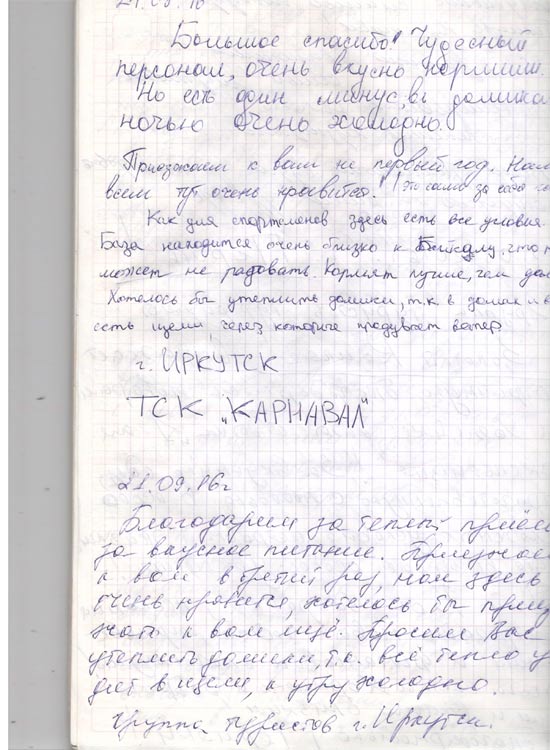 21.09.16
Большое спасибо! Чудесный
персонал, очень вкусно кормили.
Но есть один минус, в домика
ночью очень холодно.
Приезжаем к вам не первый год. Нам
всем тут очень нравится! (это само за себя
Как для спортсменов здесь есть все условия
База находится очень близко к Байкалу, что н
может не радовать. Кормят лучше, чем дом
Хотелось бы утеплить домики, т.к в домах
есть щели, через которые продувает ветер.
г. ИРКУТСК
ТСК „КАРНАВАЛ"
21.09.16г
Благодарим за теплый приём
за вкусное питание. Приезжаем
к вам в третий раз, нам здесь
очень нравится, хотелось бы приез
жать к вам ещё. Просим Вас
утеплить домики, т.к. всё тепло у
дит в щели, к утру холодно.
Группа туристов г. Иркутск.